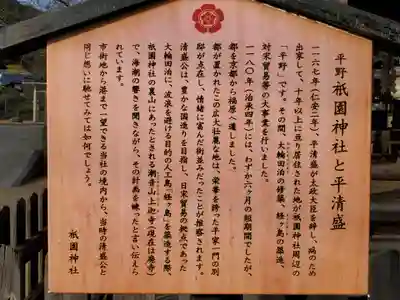 平野祇園神社と平清盛
一一六七年(仁安二年)、平清盛が太政大臣を辞し、病のため
出家して、十年以上に亘り居住された地が祇園神社周辺の
「平野」です。その間、大輪田泊の修築、経ヶ島の築造、
対宋貿易等の大事業を行いました。
一一八〇年(治承四年)には、わずか六ヶ月の短期間でしたが、
都を京都から福原へ遷しました。
都が置かれたこの広大壮麗な地は、栄華を誇った平家一門の別
邸が点在し、情緒に富んだ街並みだったことが推察されます。
清盛公は、豊かな国造りを目指し、日宋貿易の拠点であった
大輪田泊に、波浪を避ける目的の人工島「経ヶ島」を築造する際、
祇園神社の裏山にあったとされる潮音山上迦寺(現在は廃寺)
で、海潮の響きを聞きながら、その計画を練ったと言い伝えら
れています。
市街地から港まで一望できる当社の境内から、当時の清盛公と
同じ想いに馳せてみては如何でしょう。
祇園神社